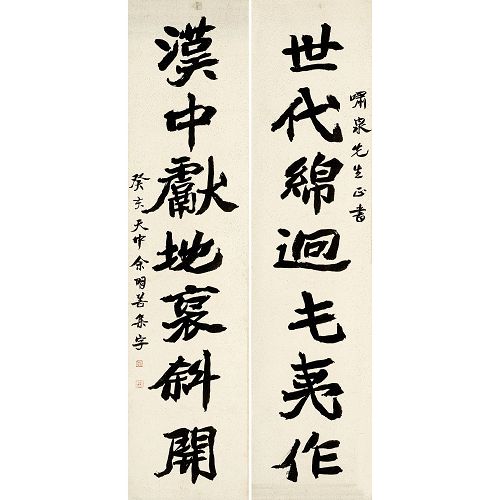 嘯泉先生正書
世代綿迴屯夷作
漢中獻地褒斜開
癸亥天中余明善集字